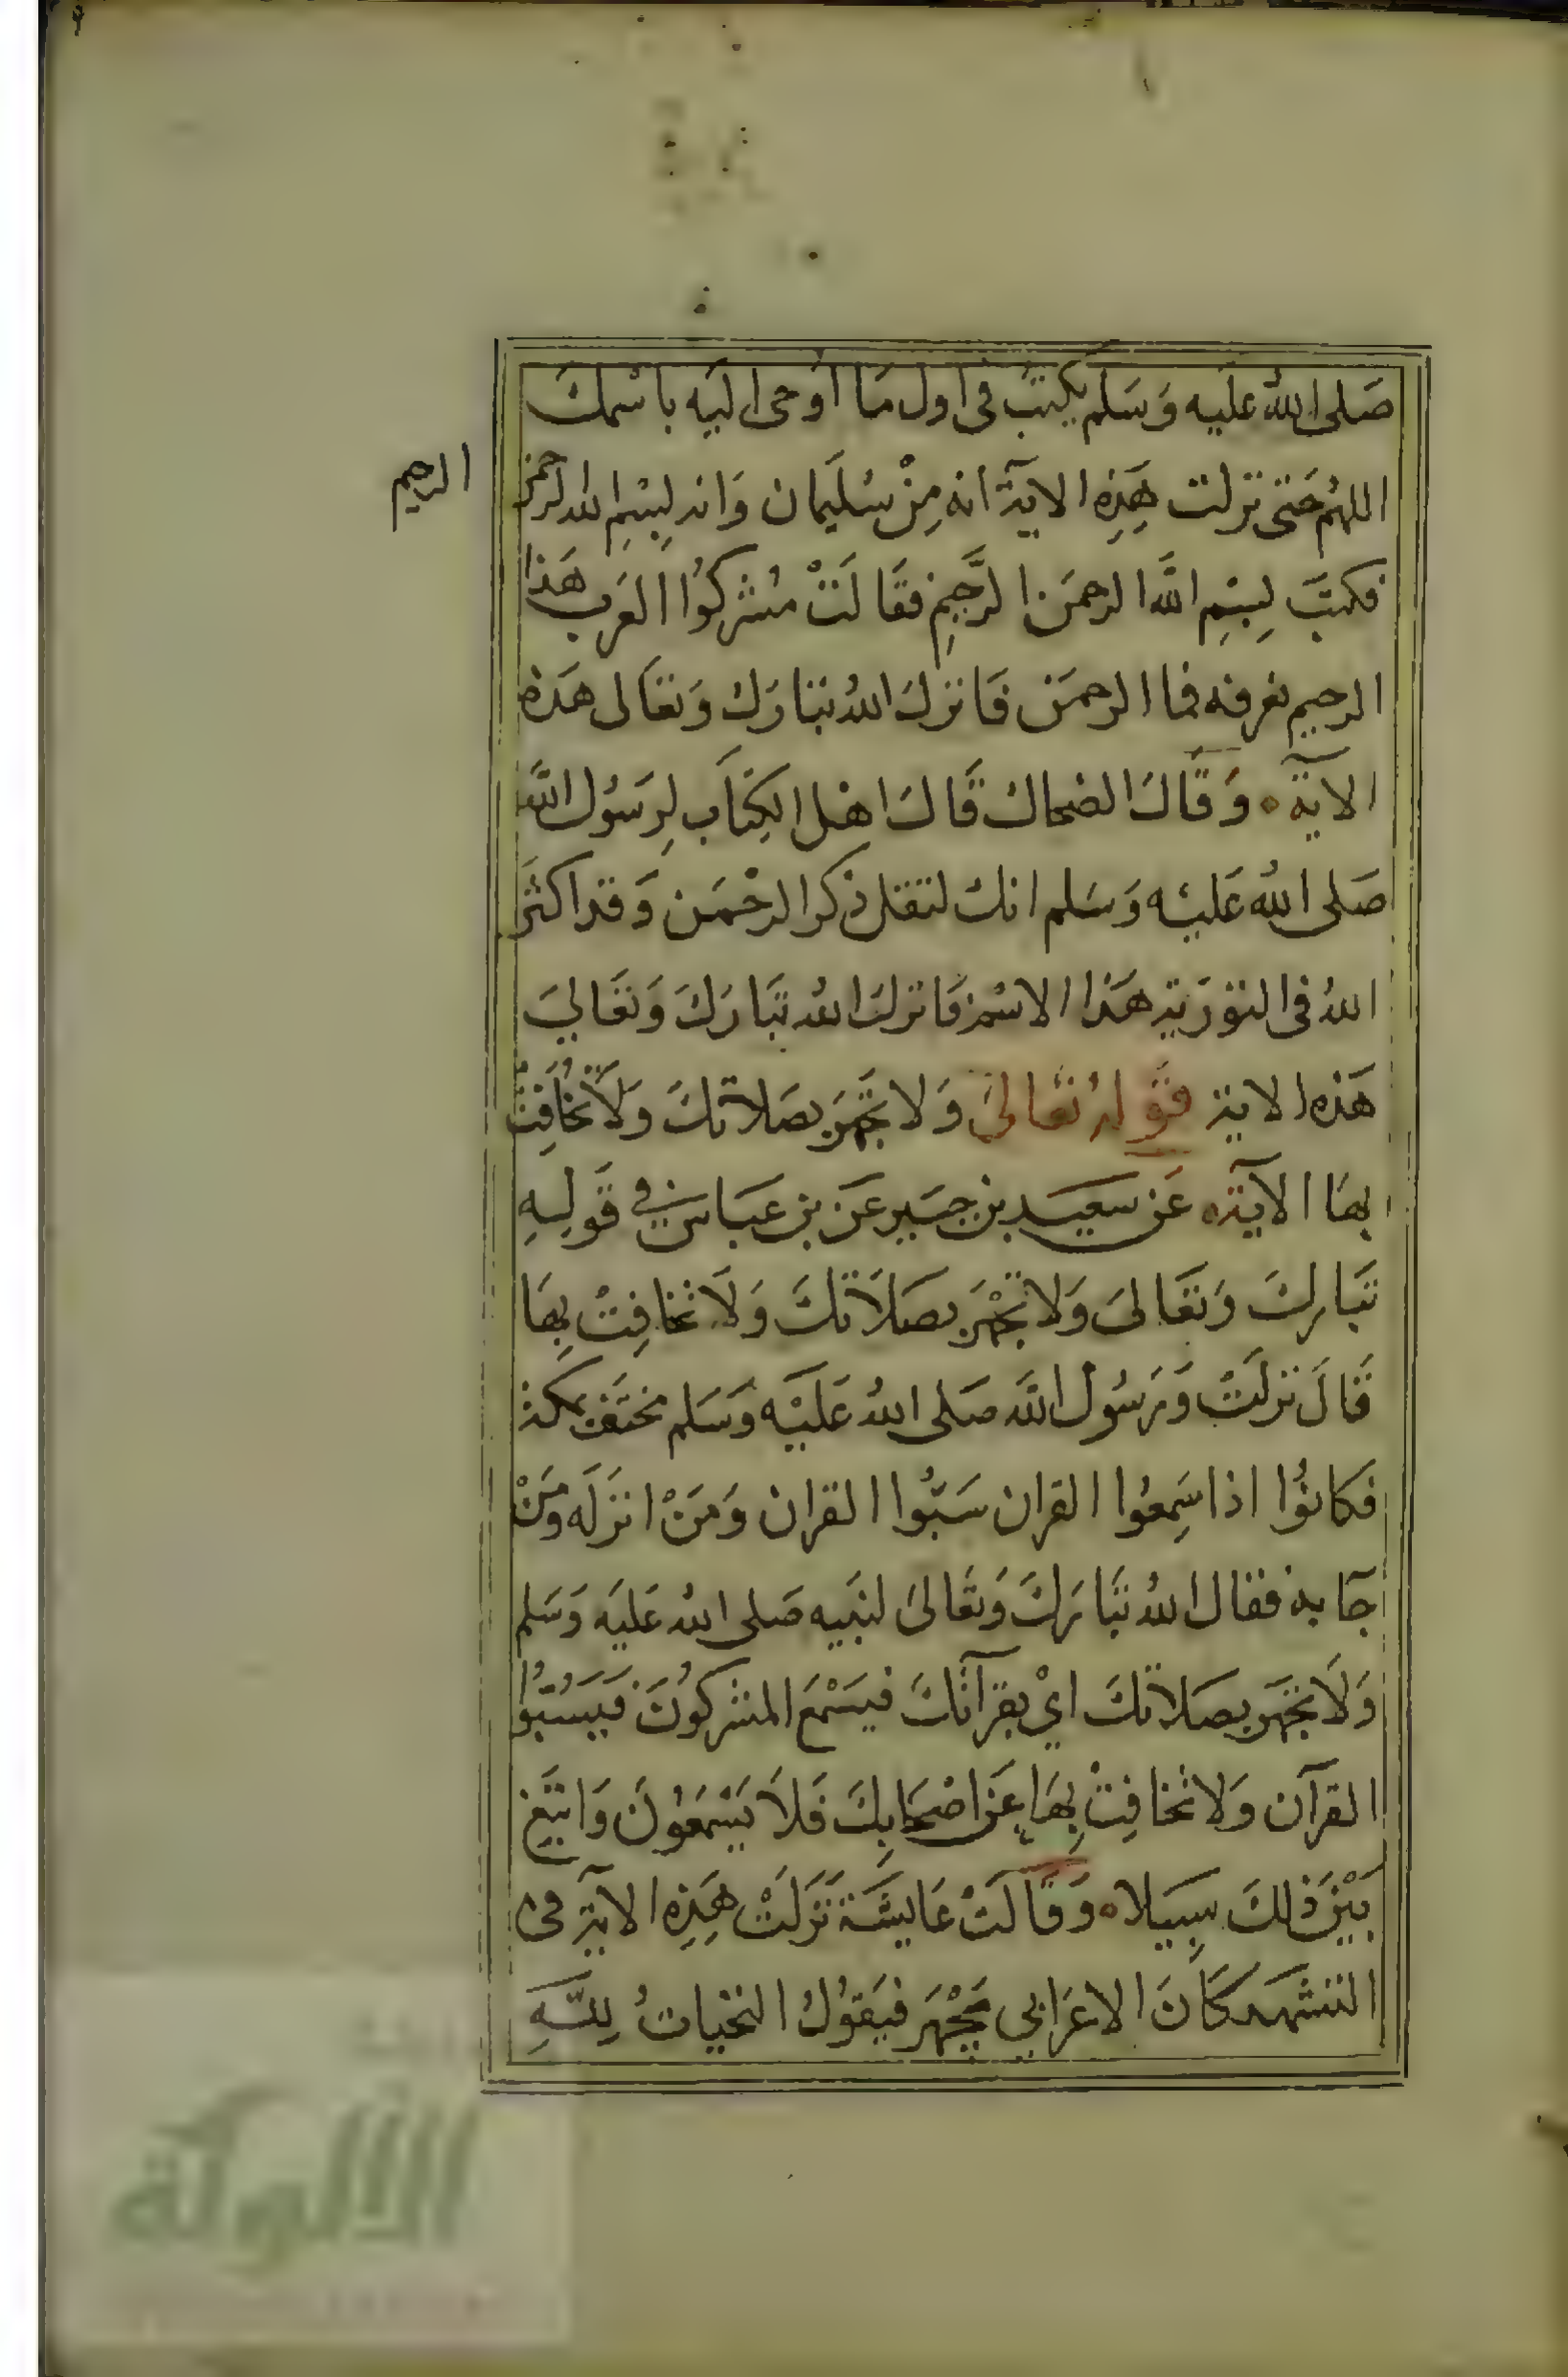 صَلى اللهُ عَليه وَسَلم يكتبَ فى اول مَا اَوحى اليَه باسْمكَ
اللهُم حَتى نزلت هَذِهِ الايَة انه مِنْ سُليَمان وَانه بِسْمِ الله الرحمن
الرحيم
فكتبَ بِسِْمِ اللهَ الرحمَن الرَّحِيمِ فقَالَتْ مُشركُوا العَرب هَذا
الرحيم نعرفه فما الرحمَن فَانزلَ اللهُ تبَارَك وَتعَالى هَذه
الآية وَقَالَ الضحاك قَالَ اهْل الكِتَاب لِرَسُول اللهَ
صَلى اللهُ عَليْه وَسَلم انك لتقل ذكر الرحْمَن وَقد اكثَر
اللهُ فى التوْرَية هَذا الاسْم فَانزلَ اللهُ تبَارَكَ وَتعَاليَ
هَذه الاية قَوْلهُ تعَالىَ وَلا تجْهَر بصَلاتكَ وَلَا تخُافِتْ
بهَا الآية عَن سَعيَد بن جبَير عَن بن عَبَاس في قَولِهِ
تبَارك وَتعَالىَ وَلا تجْهَر بصَلَاتكَ وَلَا تخافِتْ بِهَا
قَالَ نزلَتْ وَرَسُول اللهَ صَلى اللهُ عَليْه وَسَلم مختَف بمكة
فكانوُا اذا سَمِعوُا القران سَبُّوا القران وَمَنْ انزَله ومَنْ
جَآ به فقال اللهُ تبَارَكَ وَتعَالىَ لنبَيه صَلى اللهُ عَليَه وَسَلم
وَلَا تجْهَر بصَلاتكَ ايْ بقرآنكَ فيسَمْعَ المشركوُنَ فيَسُبّوُا
القرآن وَلا تخافِتْ بِهَا عَن اصْحَابِكَ فَلَا يَسْمَعوُنَ وَابْتَغِ
بَيْنَ ذلكَ سِبَيلا وَقَالَتْ عَايشَة نَزَلَتْ هَذِهِ الاية فى
التشهد كَانَ الاعَرَابي يَجْهَر فيَقوُلُ التحْياتُ لِلّهِ
الألوكة